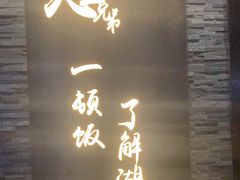 兄弟
一顿饭
了解湖